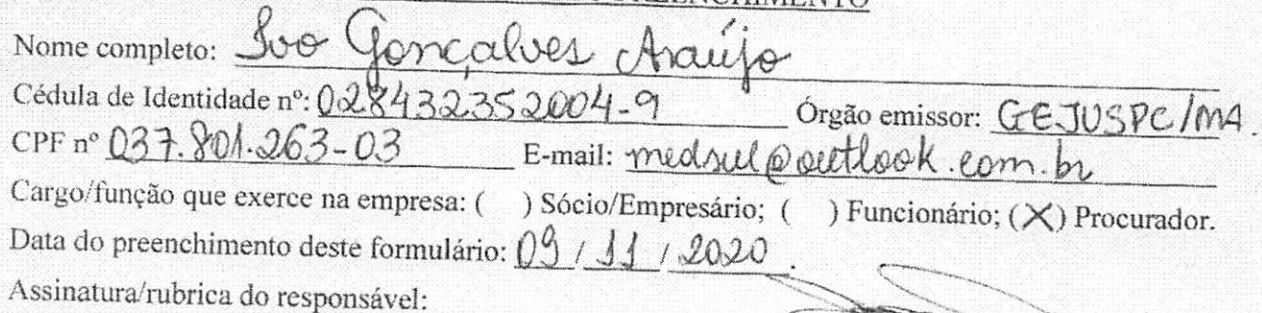 PREENCHIMENTO
Nome completo: Ivo Gonçalves Araújo
Cédula de Identidade nº: 028432352004-9 Órgão emissor: GEJUSPC/MA.
CPF nº 037.801.263-03 E-mail: medsul@outlook.com.br
Cargo/função que exerce na empresa: ( ) Sócio/Empresário; ( ) Funcionário; (X) Procurador.
Data do preenchimento deste formulário: 09 / 11 / 2020 .
Assinatura/rubrica do responsável: